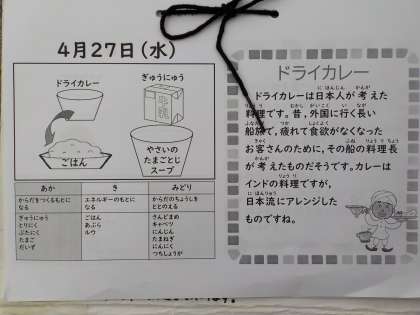 4月27日(水)
ドライカレー
ぎゅうにゅう
牛乳
ごはん
やさいの
たまごとじ
スープ
あか
き
みどり
からだをつくるもとに
なる
エネルギーのもとに
なる
からだのちょうしを
ととのえる
ぎゅうにゅう
とりにく
ぶたにく
たまご
だいず
ごはん
あぶら
ルウ
さんどまめ
キャベツ
にんじん
たまねぎ
にんにく
つちしょうが
ドライカレー
ドライカレーは日本人が考えた
料理です。昔,外国に行く長い
船旅で,疲れて食欲がなくなった
お客さんのために,その船の料理長
が考えたものだそうです。カレーは
インドの料理ですが,
日本流にアレンジした
ものですね。